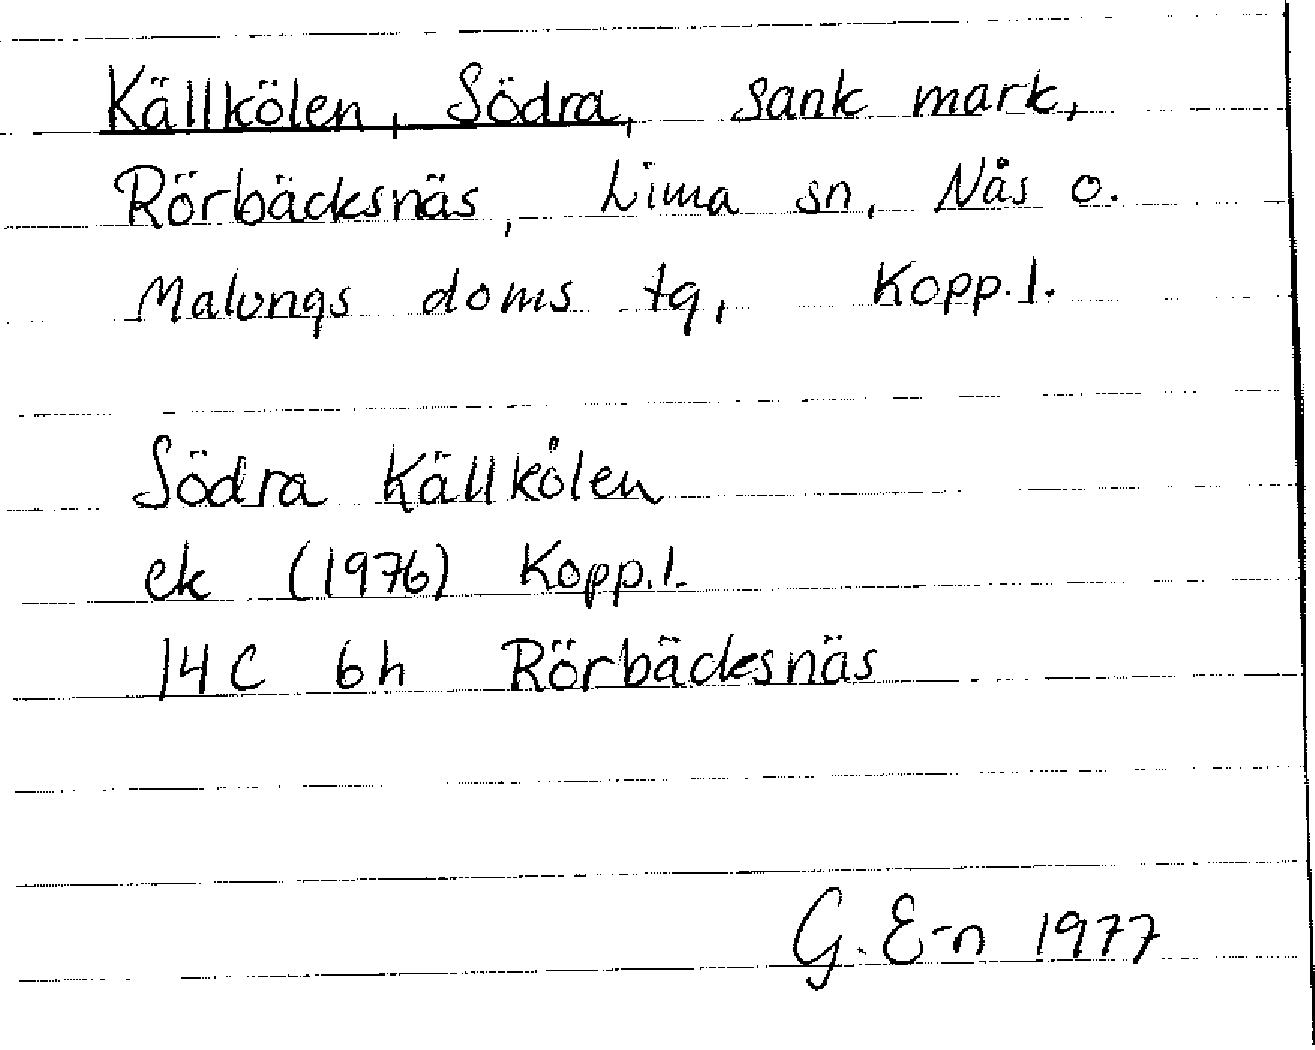 Källkölen, Södra, sank mark,
Rörbäcksnäs, Lima sn, Nås o.
Malungs doms tg, Kopp.l.
Södra Källkölen
ek (1976) Kopp.l.
14C 6h Rörbäcksnäs
G. E-n 1977